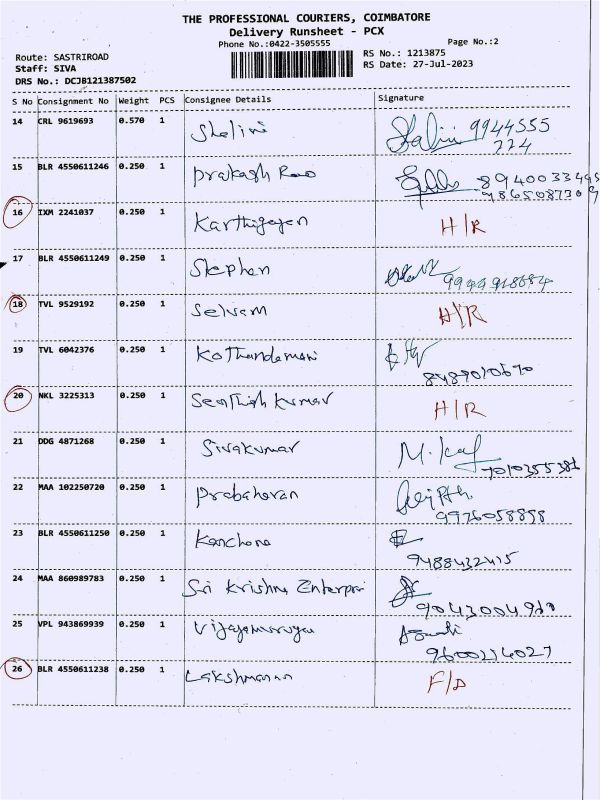 THE PROFESSIONAL COURIERS, COIMBATORE
Delivery Runsheet - PCX
Phone No.:0422-3505555 Page No.:2
Route: SASTRIROAD RS No.: 1213875
Staff: SIVA RS Date: 27-Jul-2023
DRS No.: DCJB121387502
S No Consignment No Weight PCS Consignee Details Signature
14 CRL 9619693 0.570 1 Shalini Shalini 9944555
224
15 BLR 4550611246 0.250 1 Prakash Rao
16 IXM 2241037 0.250 1 Karthigeyen H/R
17 BLR 4550611249 0.250 1 Stephen
18 TVL 9529192 0.250 1 Selvam H/R
19 TVL 6042376 0.250 1 Kothandamani
8489010670
20 NKL 3225313 0.250 1 Senthish kumar H/R
21 DDG 4871268 0.250 1 Sivakumar
22 MAA 102250720 0.250 1 Prabaharan
9926058898
23 BLR 4550611250 0.250 1 Kanchana
9488432415
24 MAA 860989783 0.250 1 Sri Krishna Enterpri
25 VPL 943869939 0.250 1 Vijayamurugan
9600214027
26 BLR 4550611238 0.250 1 Lakshmanan F/D